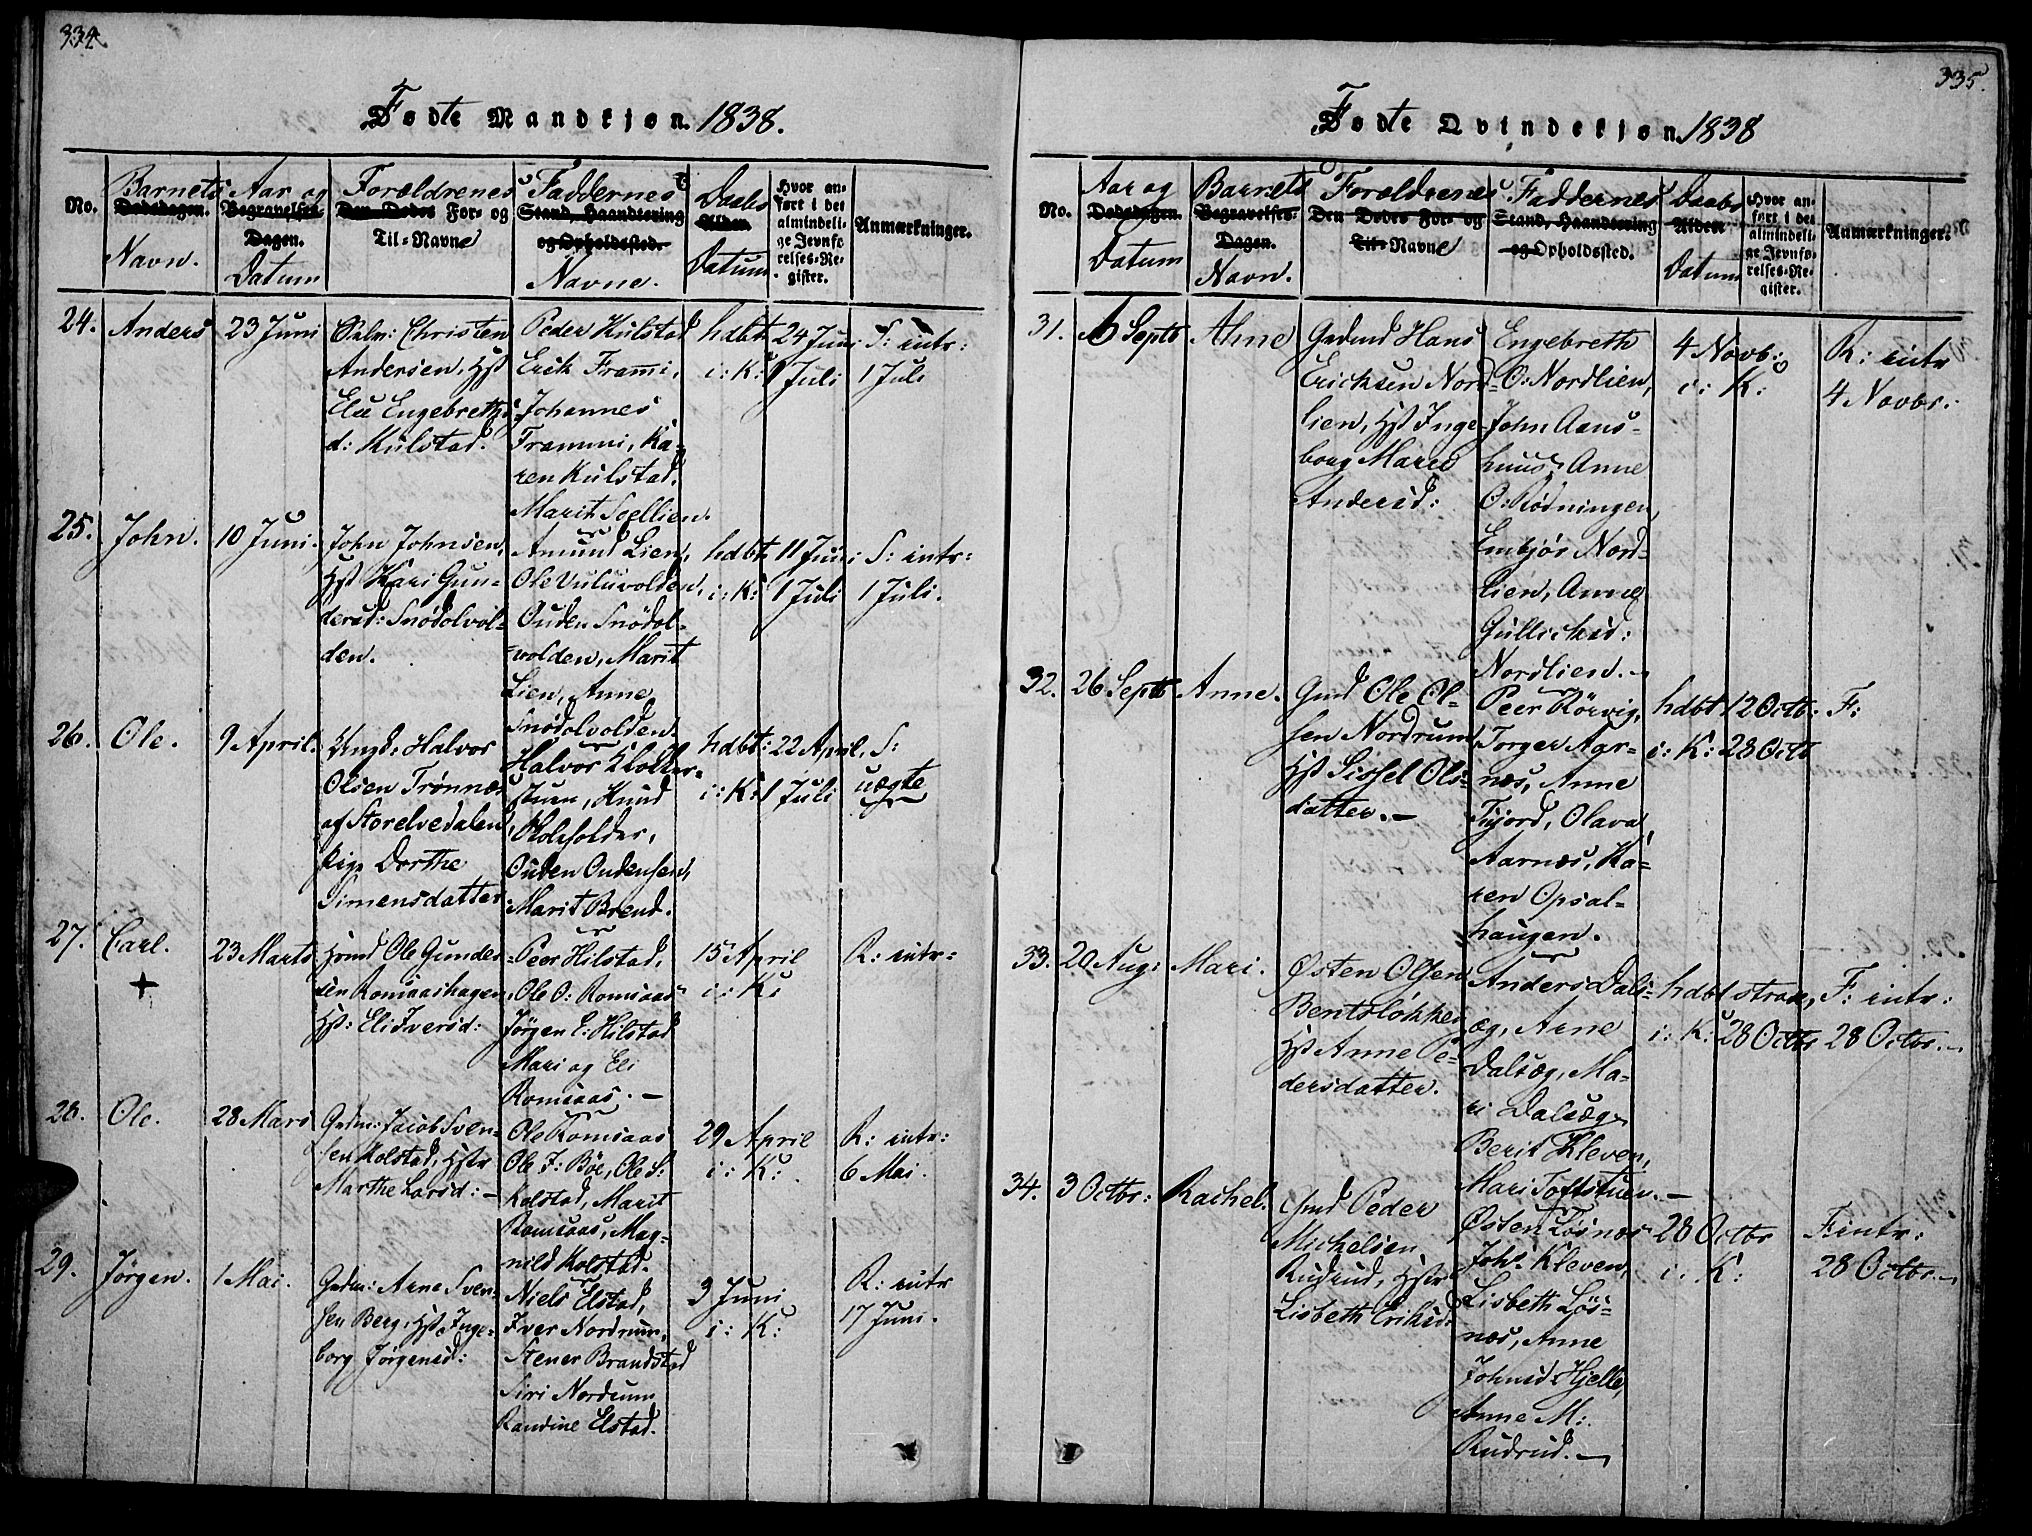 334
Fødte Mandkjøn. 1838.
No.
Barnets
Dødsdagen.
Navn.
Aar og
Begravelses-
Dagen.
Datum
Forældrenes
Den Dødes For- og
Til-Navne
Faddernes
Stand, Haandtering
og Opholdssted.
Navne.
Daabs
Alder.
Datum.
Hvor an-
ført i det
almindeli-
ge Jevnfø-
relses-Re-
gister.
Anmærkninger.
24. Anders 23 Juni
Christen
Andersen, Hst
Else Engebrethsd: Kulstad.
Peder Kulstad
Erik Frami,
Johannes
Frammi, Ka-
ren Kulstad,
Marit Soellien.
hdbt 24 Juni
i: K: 1 Juli
S: intr:
1 Juli
25. John. 10 Juni.
John Johnsen,
Hst Kari Gun-
dersd: Snødolvol-
den.
Amund Lien,
Ole Vuluvolden,
Ouden Snødol-
volden, Marit
Lien, Anne
Snødolvolden.
hdbt 11 Juni
i: K: 1 Juli
S: intr:
1 Juli.
26. Ole. 9 April.
Ungk. Halvor
Olsen Trønnæs
af Storelvedalen,
Pige Dorthe
Simensdatter
Halvor Klokker-
stuen, Knud
Ouden Oudensen,
Marit Brend.
hdbt: 22 April,
i: K: 1 Juli
S:
uægte
27. Carl. 23 Marts
+
Hmd Ole Gunder-
sen Romsaashagen,
Hst: Eli Iversd:
Peer Hilstad,
Ole O: Romsaas
Jørgen E: Hilstad
Mari og Eli
Romsaas. —
15 April
i: K:
R: intr:
28. Ole. 28 Mars
Grdm: Jacob Sven-
sen Kolstad, Hstr
Marthe Larsd: —
Ole Romsaas
Ole J: Böe, Ole S:
Kolstad, Marit
Romsaas, Mag-
nild Kolstad.
29 April
i: K:
R: intr:
6 Mai.
29. Jørgen. 1 Mai.
Grdm: Arne Sven-
sen Berg, Hst. Inge-
borg Jørgensd:
Niels Elstad,
Iver Nordrum,
Stener Brandstad
Siri Nordrum
Randine Elstad.
3 Juni
i: K:
R: intr
17 Juni.
335.
Fødte Qvindekjøn 1838
No.
Aar og
Dødsdagen.
Datum
Barnets
Begravelses-
Dagen.
Navn.
Forældrenes
Den Dødes For- og
Til-Navne
Faddernes
Stand, Haandtering
og Opholdssted.
Daabs
Alder
Datum
Hvor an-
ført i det
almindeli-
ge Jevnfø-
relses-Re-
gister.
Anmærkninger.
31. 6 Septb Ahne
Grdmd Hans
Ericksen Nord-
lien, Hst Inge-
borg Marie
Andersd:
Engebreth
O: Nordlien,
John Aans-
huus, Anne
O: Rödningen,
Embjör Nord-
lien, Anne
Gullichsd:
Nordlien. —
4 Novb:
i: K:
R: intr
4 Novbr:
32. 26 Septb Anne.
Gmd Ole Ol-
sen Nordrum
Hst Sissel Ols-
datter. —
Peer Rörvig,
Torger Aar-
næs, Anne
Olava
Aarnæs, Ka-
ren Opsal-
haugen.
hdbt 12 Octb:
i: K: 28 Octb
F:
33. 20 Aug: Mari.
Østen Olsen
Bentsløkken
Hst Anne Pe-
dersdatter.
Anders Dals-
æg, Arne
Dalsæg, Ma-
ri Dalsæg
Berit Kleven,
Mari Toftstuen. —
hdbt strax,
i: K: 28 Octbr
F: intr:
28 Octbr. —
34. 3 Octbr: Rachel.
Gmd Peder
Mickelsen
Rudrud, Hstr
Lisbeth Eriksd:
Østen Løsnæs
Johs Kleven,
Lisbeth Løs-
næs, Anne
Johnsd: Hjelle,
Anne M:
Rudrud. —
28 Octbr
i: K:
F intr:
28 Octbr. —